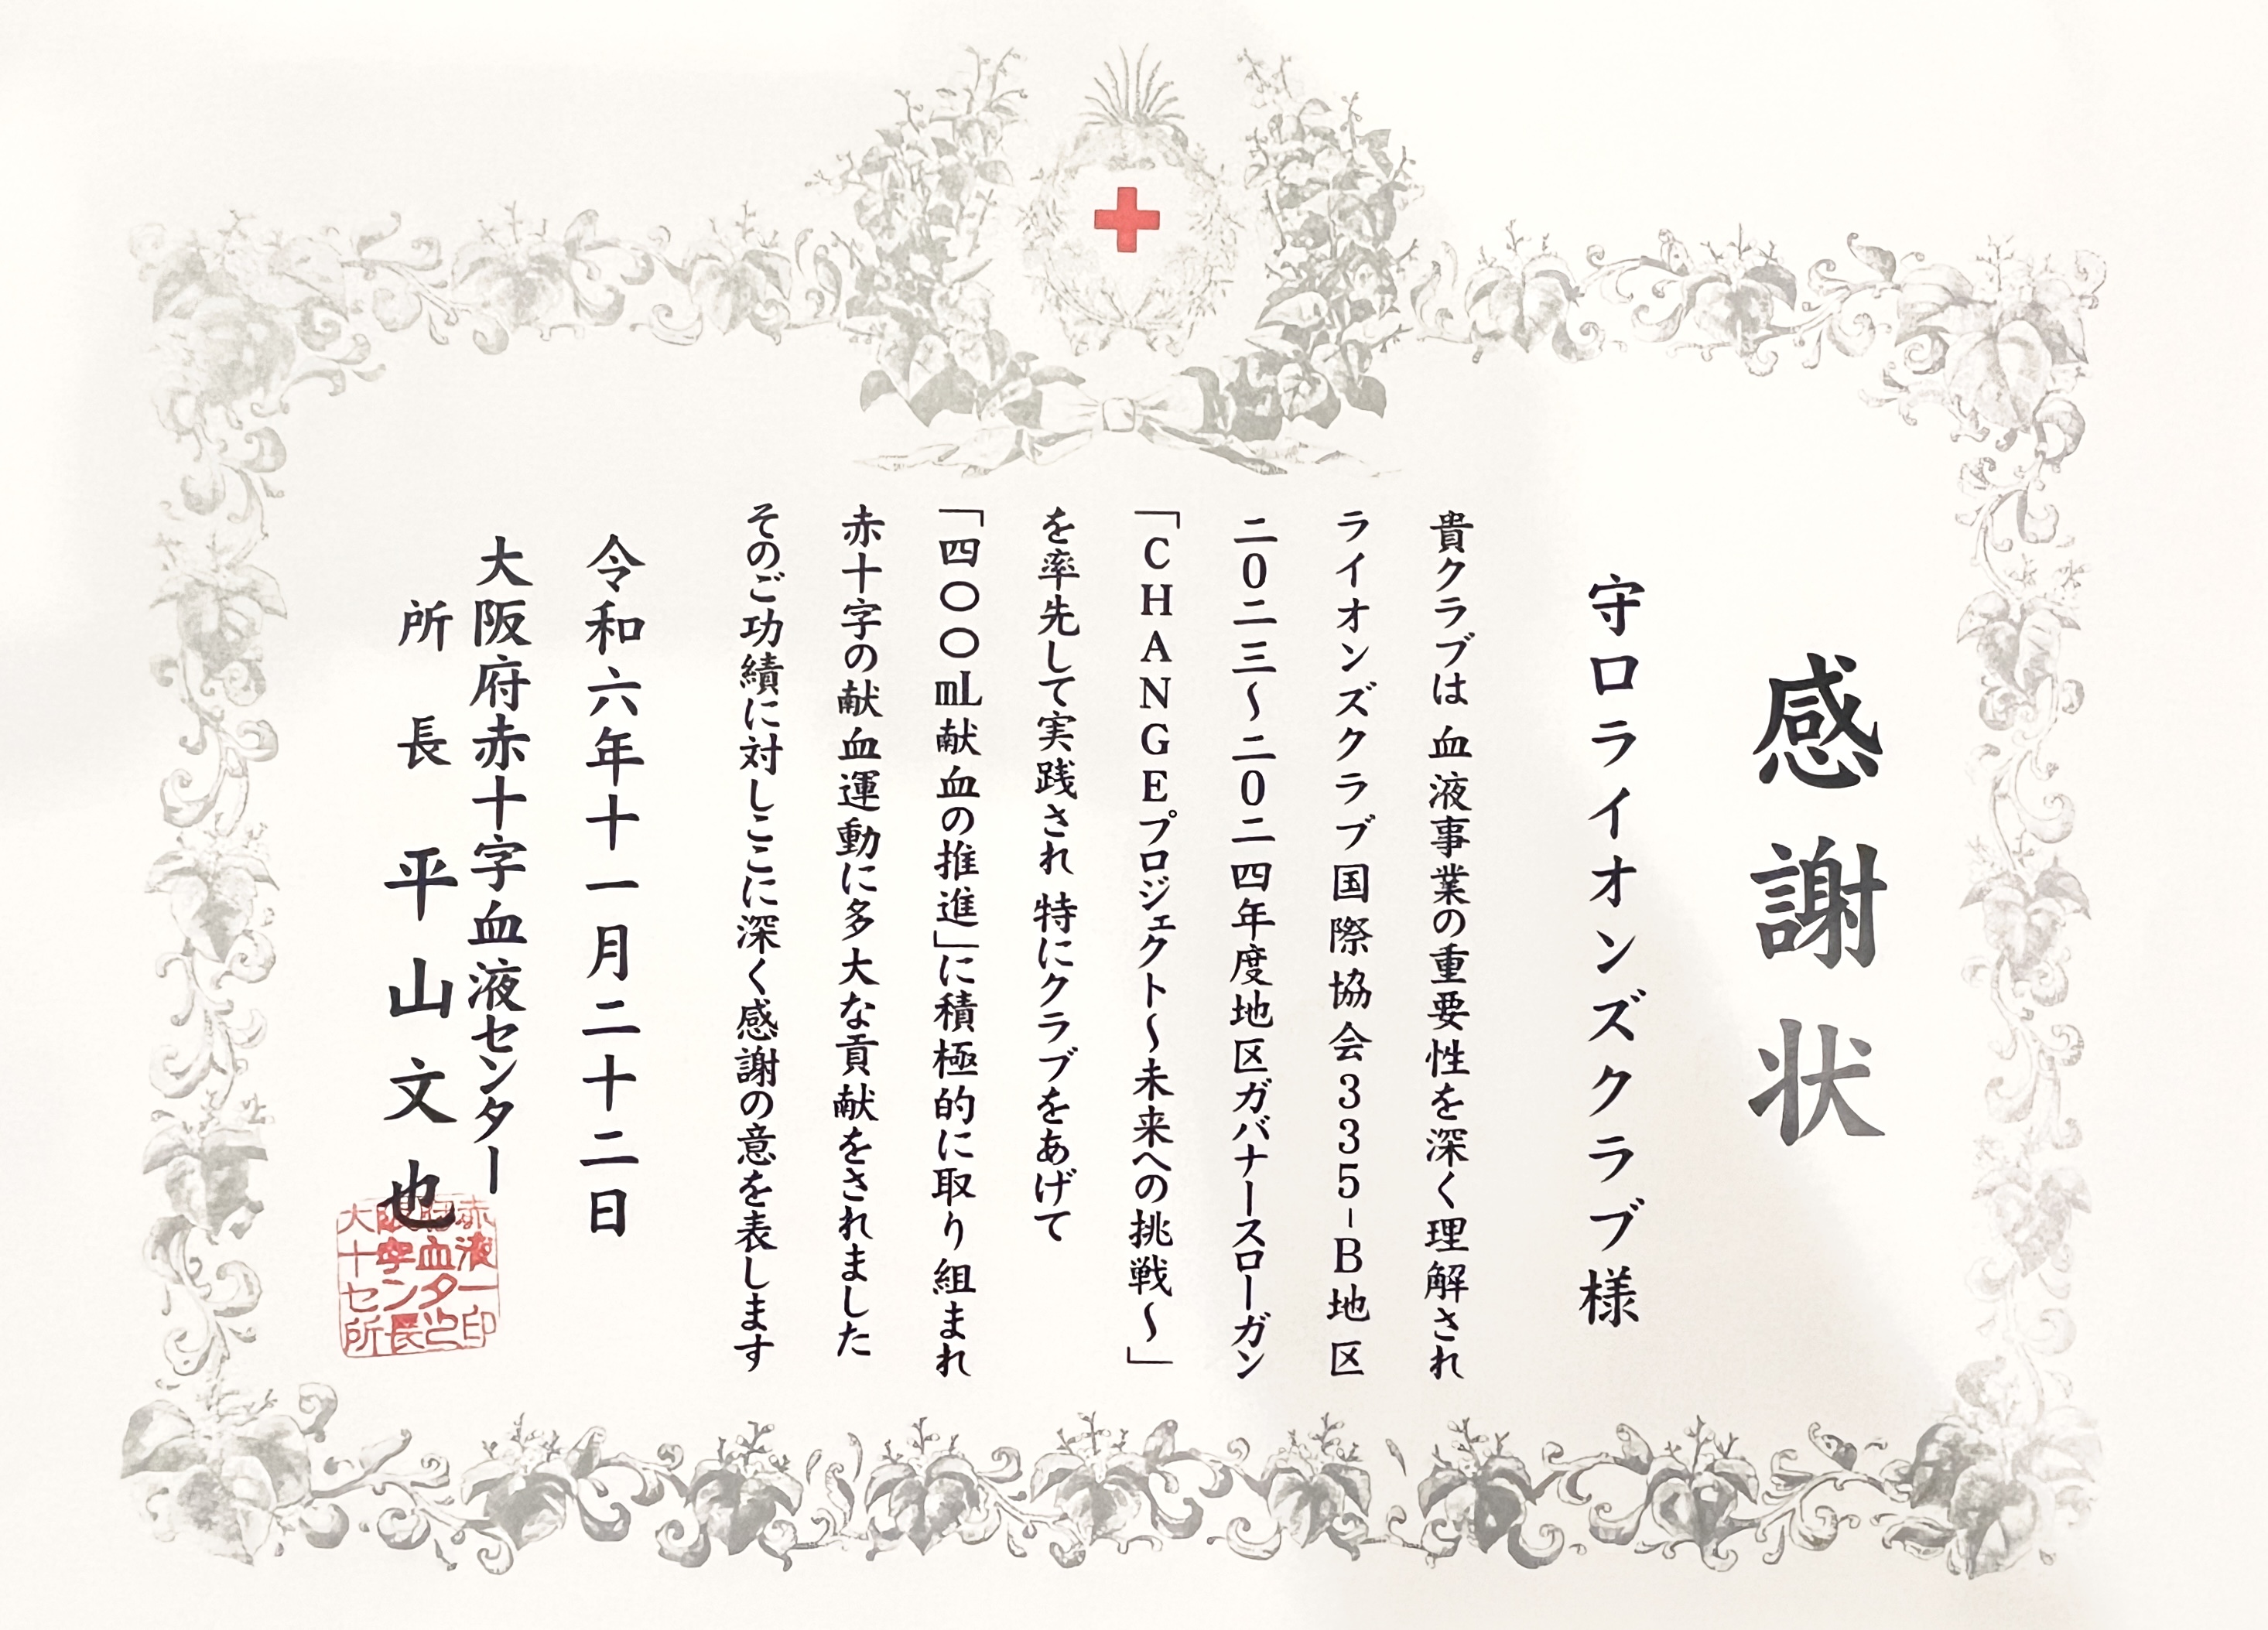 感謝状
守口ライオンズクラブ様
貴クラブは 血液事業の重要性を深く理解され
ライオンズクラブ国際協会335-B地区
二0二三～二0二四年度地区ガバナースローガン
「CHANGEプロジェクト～未来への挑戦～」
を率先して実践され 特にクラブをあげて
「四〇〇mL献血の推進」に積極的に取り組まれ
赤十字の献血運動に多大な貢献をされました
そのご功績に対しここに深く感謝の意を表します
令和六年十一月二十二日
大阪府赤十字血液センター
所長 平山文也
赤液一印
府血タ之
阪字ン長
大十セ所